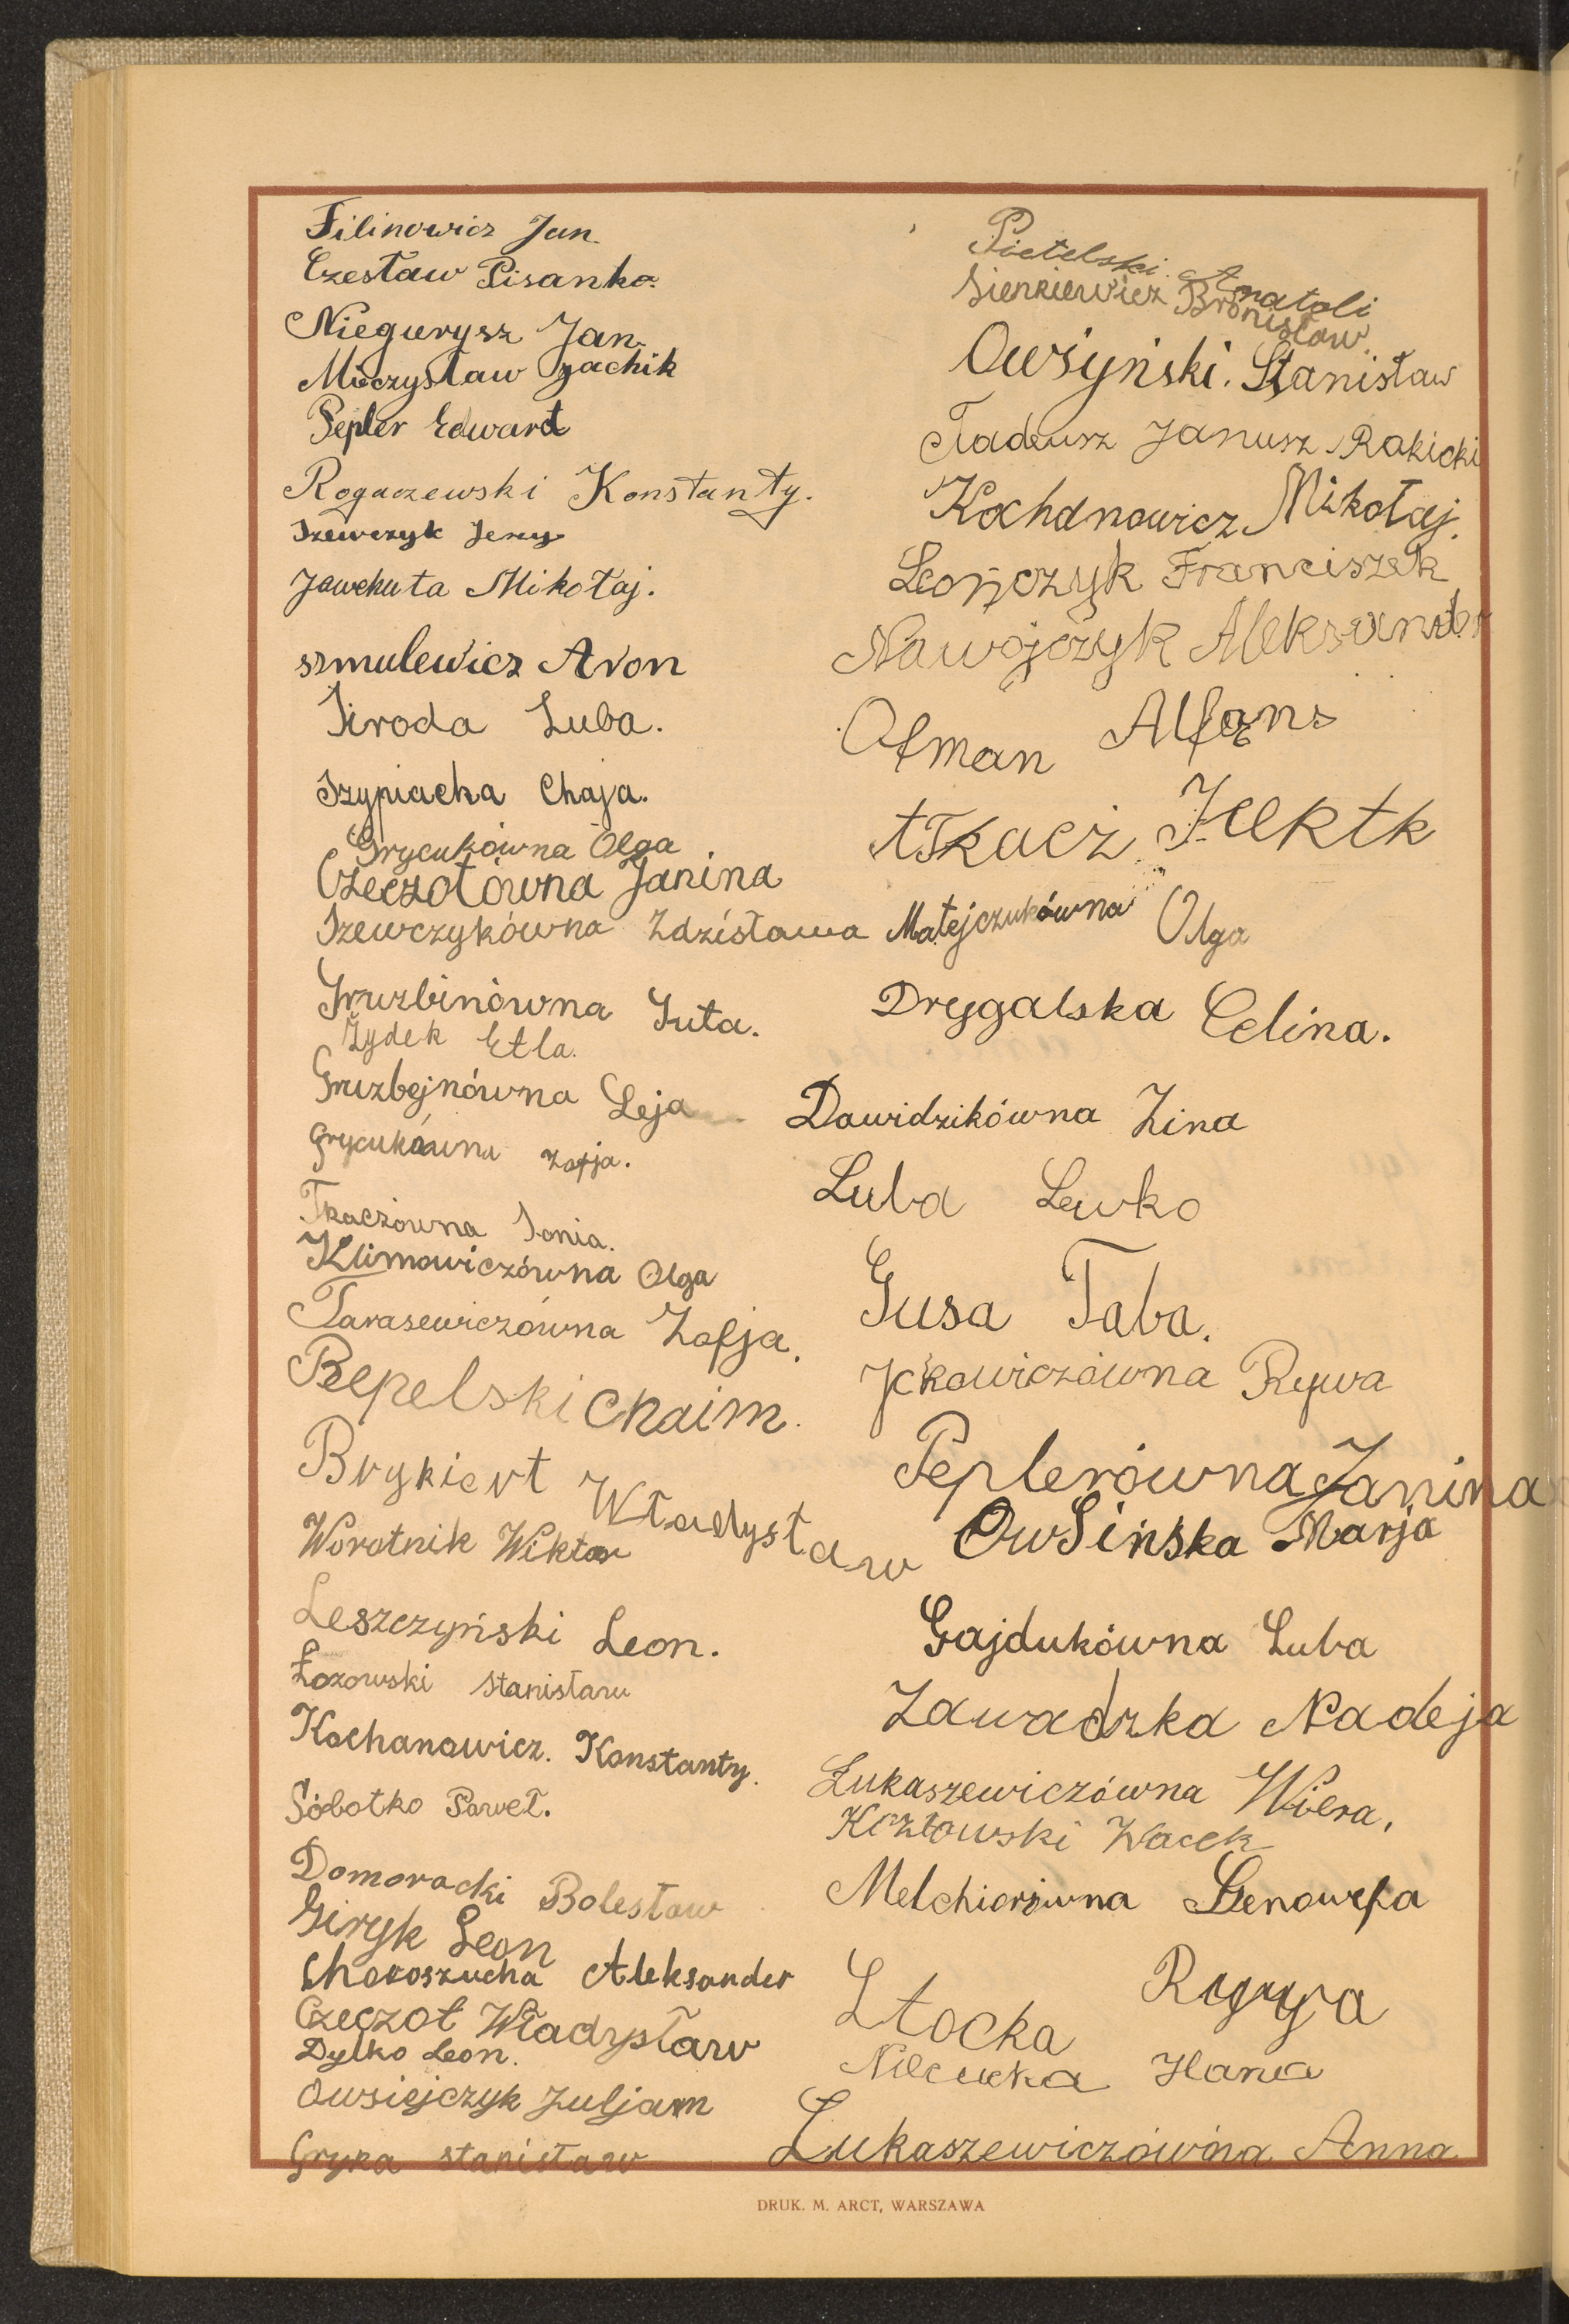 Filinowicz Jan.
Czesław Pisanko.
Niegurysz Jan.
Mieczysław Szachik
Pepler Edward
Rogaczewski Konstanty.
Szewczyk Jerzy
Jawchuta Mikołaj.
szmulewicz Aron
Siroda Luba.
Szypiacka Chaja.
Grycukówna Olga
Czeczotówna Janina
Szewczykówna Zdzisława
Gruzbinówna Guta.
Żydek Etla.
Gruzbejnówna Leja
Grycukówna Zofja.
Tkaczówna Sonia.
Klimowiczówna Olga
Tarasewiczówna Zofja.
Repelski Chaim.
Brykiert Władysław
Worotnik Wiktor
Leszczyński Leon.
Łozowski Stanisław
Kochanowicz. Konstanty.
Sobotko Paweł.
Domoracki Bolesław
Giryk Leon
Choroszucha Aleksander
Czeczot Władysław
Dylko Leon.
Owsiejczyk Juljan
Gryka stanisław
Pietelski Anatoli
Sienkiewicz Bronisław.
Owsyński. Stanisław
Tadeusz Janusz Rakicki
Kochanowicz Mikołaj.
Leończyk Franciszek
Nawojczyk Aleksander
Ofman Alfons
Tkacz
Matejczukówna Olga
Drygalska Celina.
Dawidzikówna Zina
Luba Lewko
Gusa Taba.
Jckowiczówna Rywa
Peplerówna Janina
Owsińska Marja
Gajdukówna Luba
Zawadzka Nadeja
Łukaszewiczówna Wiera.
Kozłowski Wacek
Melchiorówna Genowefa
Stocka
Hana
Łukaszewiczówna Anna
DRUK. M. ARCT, WARSZAWA